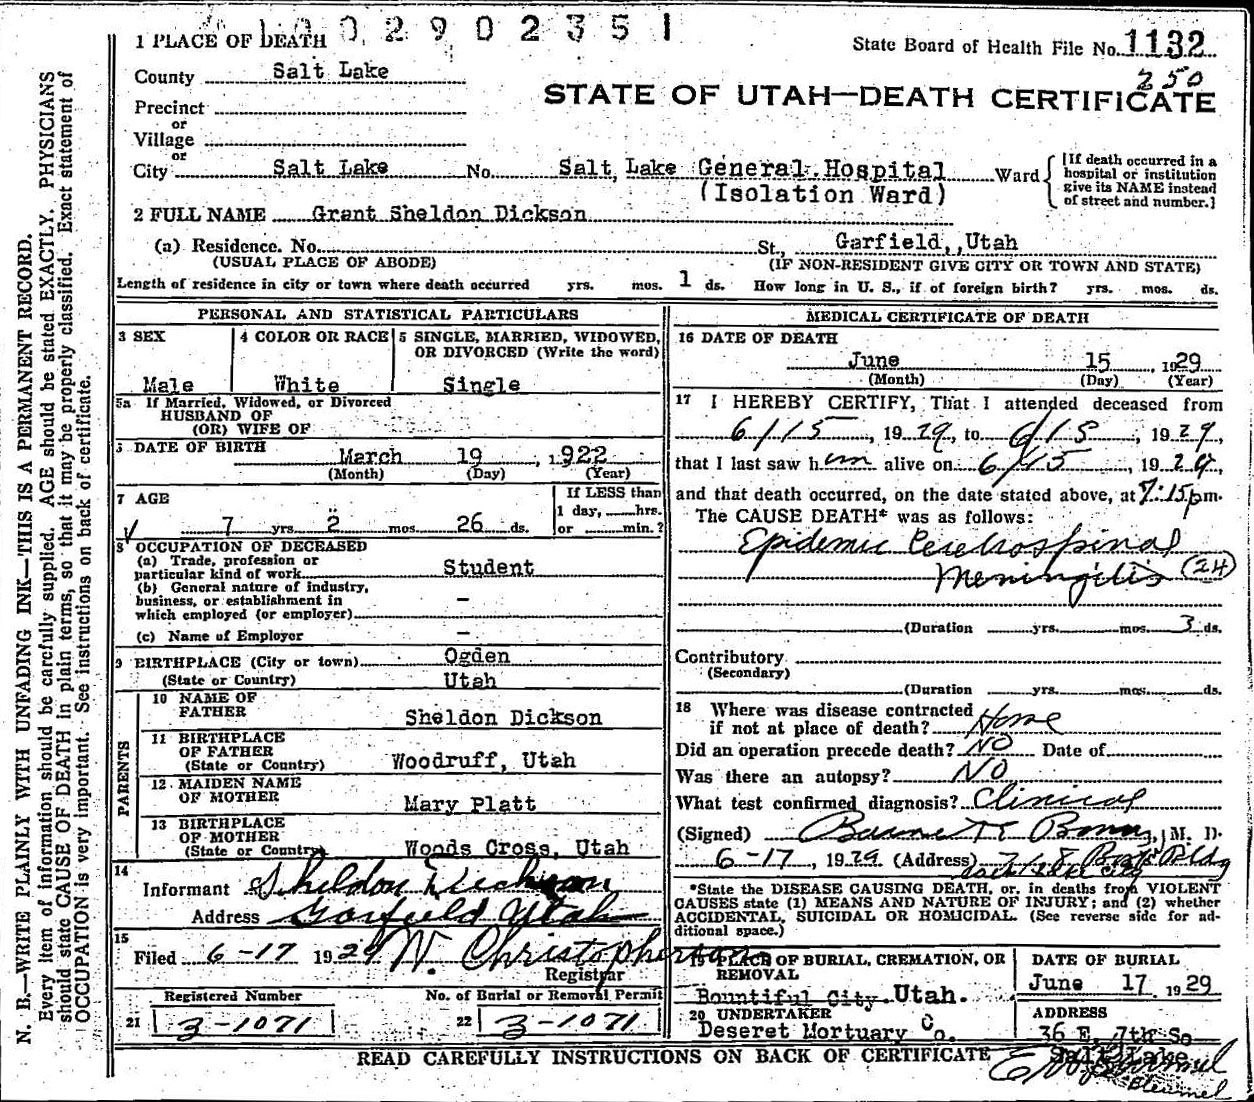 0 2 9 0 2 3 5 1
1 PLACE OF DEATH
State Board of Health File No. 1132
250
County Salt Lake
STATE OF UTAH—DEATH CERTIFICATE
Precinct
or
Village
or
City Salt Lake No. Salt Lake General Hospital Ward
(Isolation Ward)
[If death occurred in a
hospital or institution
give its NAME instead
of street and number.]
2 FULL NAME Grant Sheldon Dickson
(a) Residence. No. St., Garfield, Utah
(USUAL PLACE OF ABODE) (IF NON-RESIDENT GIVE CITY OR TOWN AND STATE)
Length of residence in city or town where death occurred yrs. mos. 1 ds. How long in U. S., if of foreign birth? yrs. mos. ds.
PERSONAL AND STATISTICAL PARTICULARS
3 SEX
Male
4 COLOR OR RACE
White
5 SINGLE, MARRIED, WIDOWED,
OR DIVORCED (Write the word)
Single
5a If Married, Widowed, or Divorced
HUSBAND OF
(OR) WIFE OF
6 DATE OF BIRTH March 19, 1922
(Month) (Day) (Year)
7 AGE
7 yrs. 2 mos. 26 ds.
If LESS than
1 day, hrs.
or min.?
8 OCCUPATION OF DECEASED
(a) Trade, profession or
particular kind of work Student
(b) General nature of industry,
business, or establishment in
which employed (or employer) –
(c) Name of Employer –
9 BIRTHPLACE (City or town) Ogden
(State or Country) Utah
PARENTS
10 NAME OF
FATHER Sheldon Dickson
11 BIRTHPLACE
OF FATHER
(State or Country) Woodruff, Utah
12 MAIDEN NAME
OF MOTHER Mary Platt
13 BIRTHPLACE
OF MOTHER
(State or Country) Woods Cross, Utah
14
Informant Sheldon Dickson
Address Garfield Utah
15
Filed 6-17 1929 W. Christopherson
Registrar
Registered Number
21 3-1071
No. of Burial or Removal Permit
22 3-1071
MEDICAL CERTIFICATE OF DEATH
16 DATE OF DEATH
June 15, 1929
(Month) (Day) (Year)
17 I HEREBY CERTIFY, That I attended deceased from
6/15, 1929, to 6/15, 1929,
that I last saw him alive on 6/15, 1929,
and that death occurred, on the date stated above, at 7:15 pm.
The CAUSE DEATH* was as follows:
Epidemic Cerebrospinal
Meningitis (24)
(Duration yrs. mos. 3 ds.
Contributory
(Secondary)
(Duration yrs. mos. ds.
18 Where was disease contracted
if not at place of death? Home
Did an operation precede death? NO Date of
Was there an autopsy? NO
What test confirmed diagnosis? Clinical
(Signed) M. D.
6-17, 1929 (Address) Bldg
Salt Lake City
*State the DISEASE CAUSING DEATH, or, in deaths from VIOLENT
CAUSES state (1) MEANS AND NATURE OF INJURY; and (2) whether
ACCIDENTAL, SUICIDAL OR HOMICIDAL. (See reverse side for ad-
ditional space.)
19 PLACE OF BURIAL, CREMATION, OR
REMOVAL
Bountiful City Utah.
DATE OF BURIAL
June 17, 1929
20 UNDERTAKER
Deseret Mortuary Co.
ADDRESS
36 E. 7th So
Salt Lake
READ CAREFULLY INSTRUCTIONS ON BACK OF CERTIFICATE
N. B.—WRITE PLAINLY WITH UNFADING INK—THIS IS A PERMANENT RECORD.
Every item of information should be carefully supplied. AGE should be stated EXACTLY. PHYSICIANS
should state CAUSE OF DEATH in plain terms, so that it may be properly classified. Exact statement of
OCCUPATION is very important. See instructions on back of certificate.